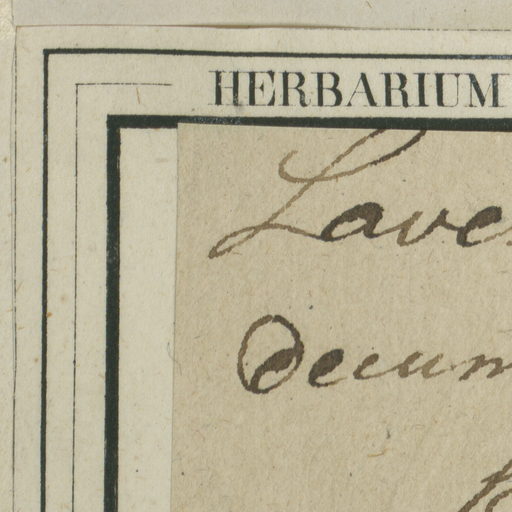 HERBARIUM
Lave
decum